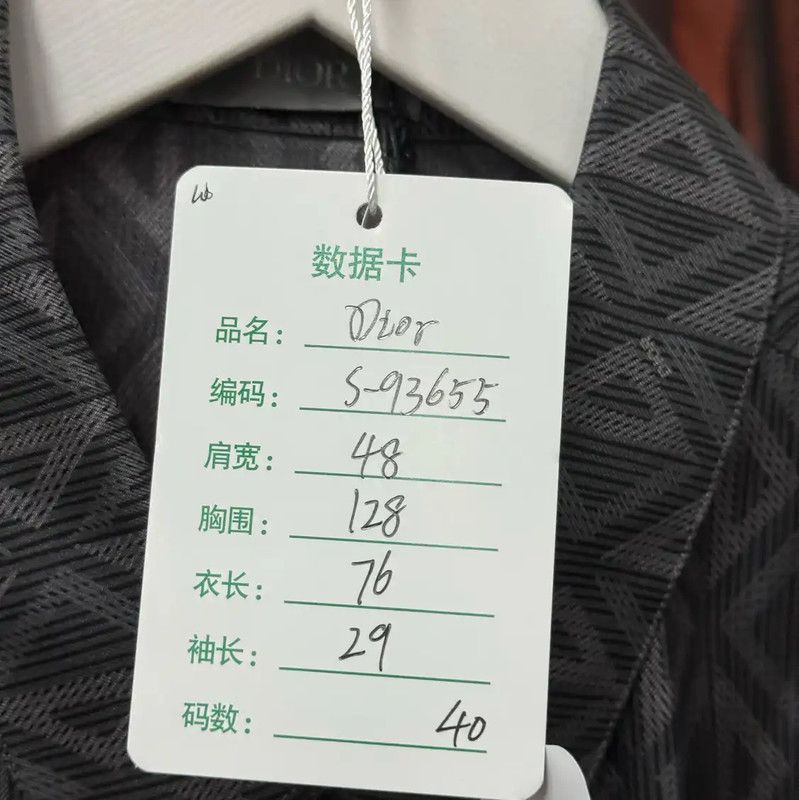 DIOR
数据卡
品名： Dior
编码： S-93655
肩宽： 48
胸围： 128
衣长： 76
袖长： 29
码数： 40